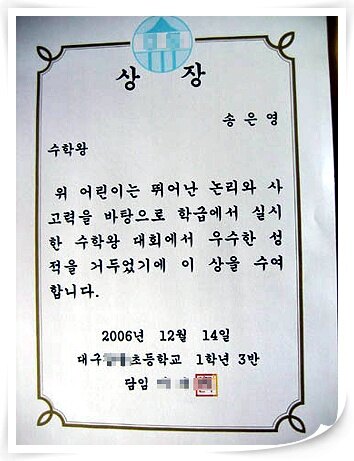 상 장
송은영
수학왕
위 어린이는 뛰어난 논리와 사
고력을 바탕으로 학급에서 실시
한 수학왕 대회에서 우수한 성
적을 거두었기에 이 상을 수여
합니다.
2006년 12월 14일
대구 초등학교 1학년 3반
담임